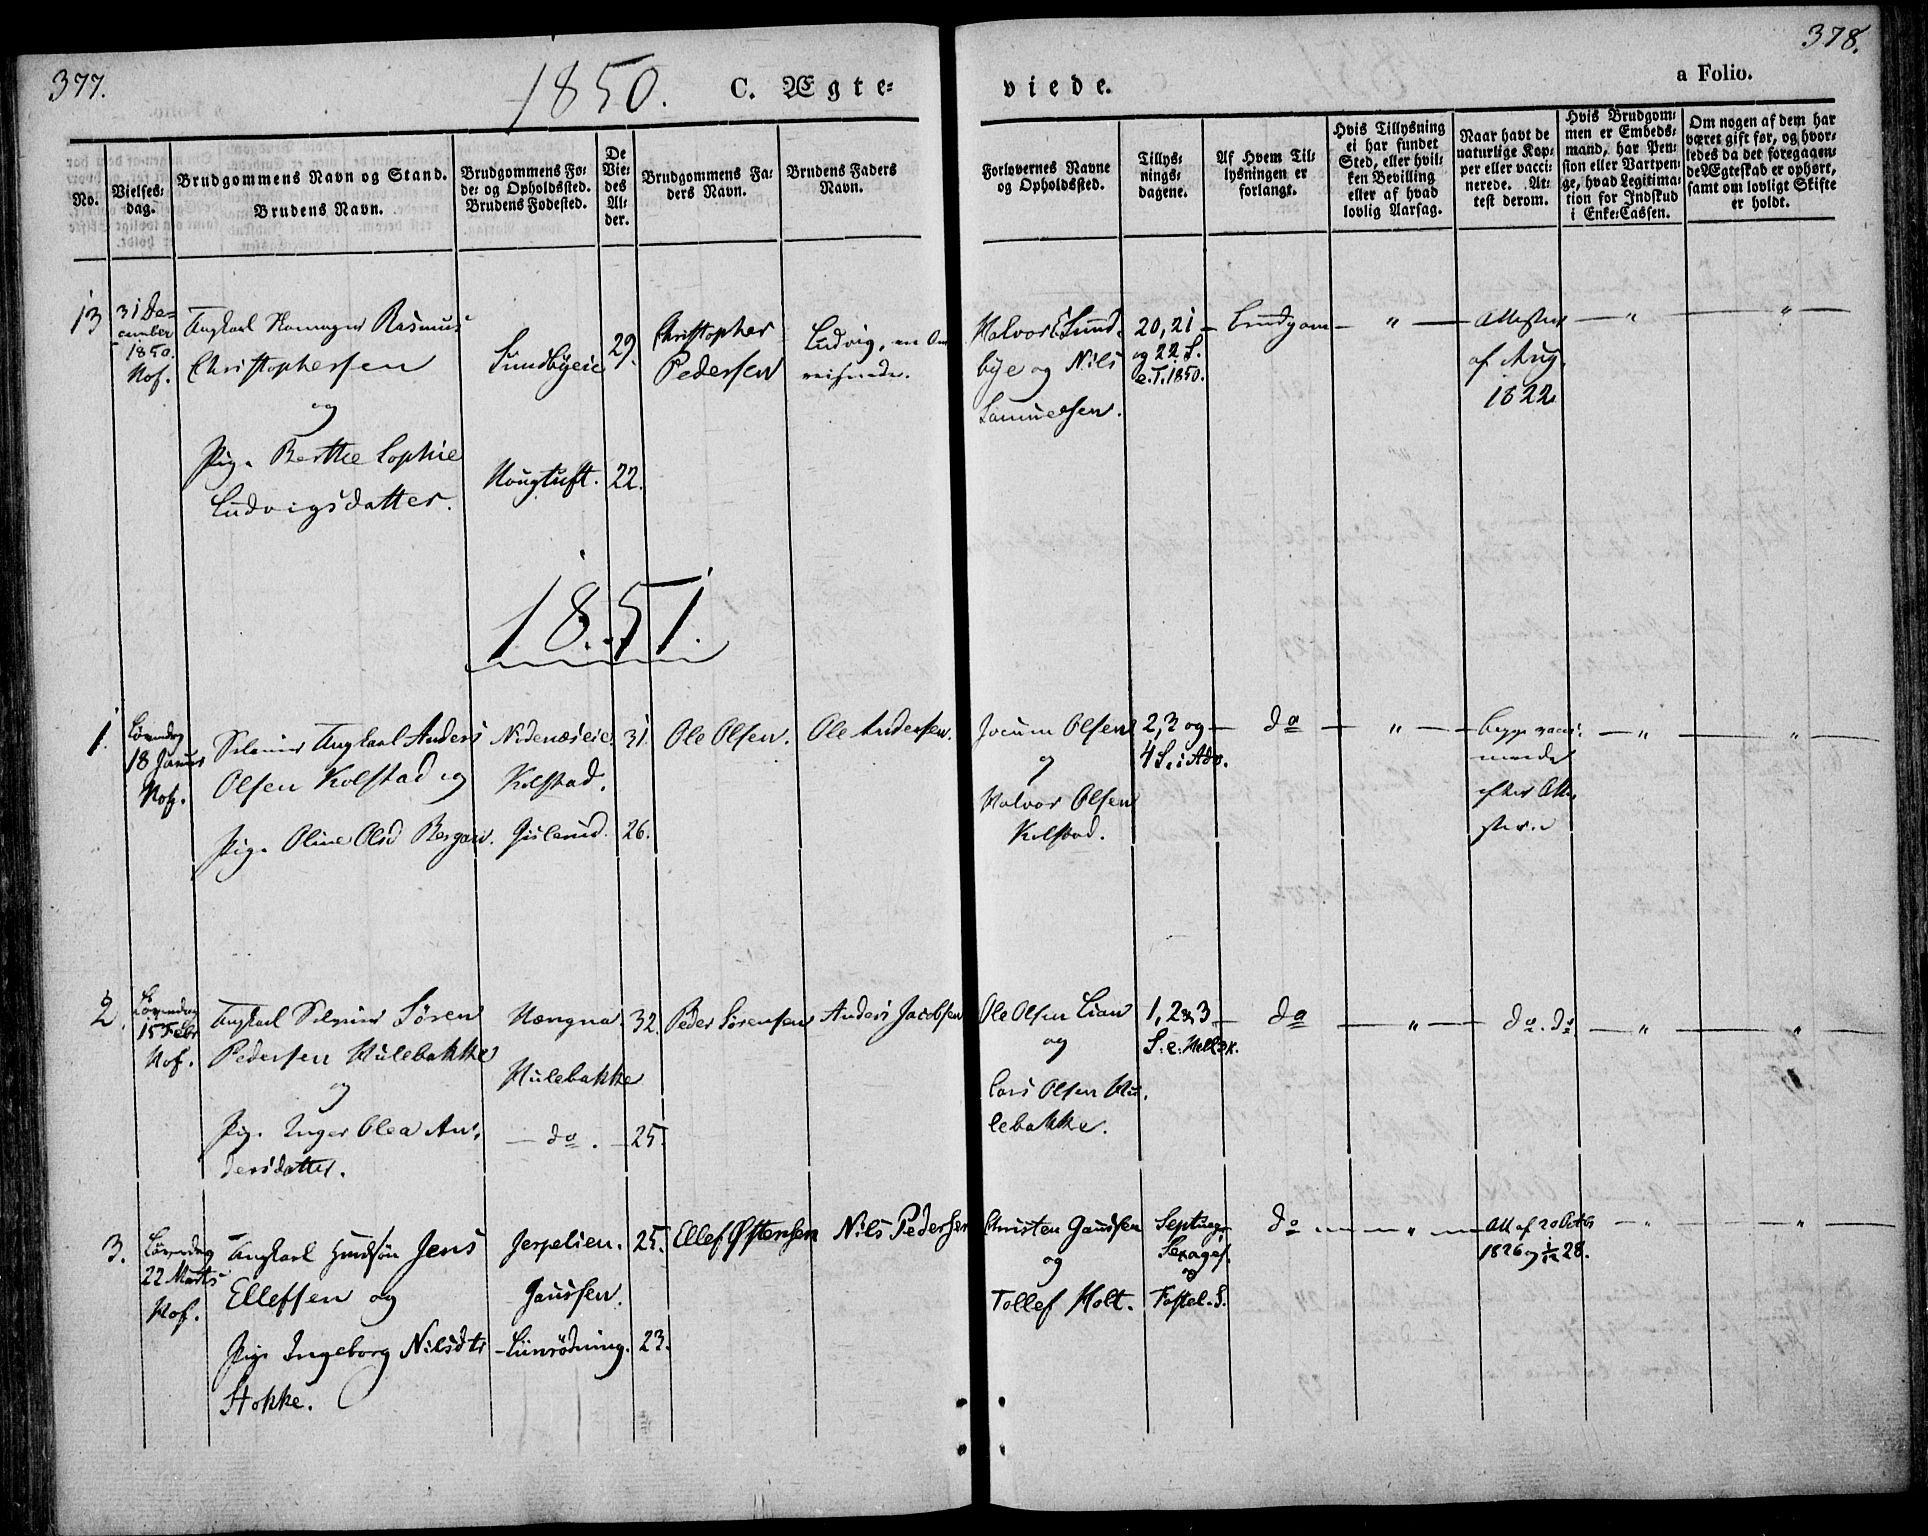 377.
1850.
C. Ægte-
viede.
a Folio.
378.
No.
Vielses-
dag.
Brudgommens Navn og Stand.
Brudens Navn.
Brudgommens Fø-
de- og Opholdssted.
Brudens Fødested.
De
Vie-
des
Al-
der.
Brudgommens Fa-
ders Navn.
Brudens Faders
Navn.
Forlovernes Navne
og Opholdssted.
Tillys-
nings-
dagene.
Af Hvem Til-
lysningen er
forlangt.
Hvis Tillysning
ei har fundet
Sted, eller hvil-
ken Bevilling
eller af hvad
lovlig Aarsag.
Naar havt de
naturlige Kop-
per eller vacci-
nerede. At-
test derom.
Hvis Brudgom-
men er Embeds-
mand, har Pen-
sion eller Vartpen-
ge, hvad Legitima-
tion for Indskud
i Enke-Cassen.
Om nogen af dem har
været gift før, og hvor-
ledes da det foregaaen-
de Ægteskab er ophørt,
samt om lovligt Skifte
er holdt.
13
31 De-
cember
1850.
Hof.
Ungkarl Rasmus
Christophersen
og
Pig. Berthe Sophie
Ludvigsdatter.
Sundbyeie
Hougtuft.
29.
22.
Christopher
Pedersen
Ludvig, en Om
reisende.
Halvor E. Sund-
bye og Nils
Samuelsen.
20, 21
og 22 S.
e. T. 1850.
Brudgom
"
Attester
af Aug.
1822
"
"
1851.
1.
Løverdag
18 Januar
Hof.
Selveier Ungkarl Anders
Olsen Kolstad og
Pig. Oline Olsd Bergan.
Nidenæseie.
Kolstad.
31.
26.
Ole Olsen.
Ole Andersen.
Jocum Olsen
og
Halvor Olsen
Kolstad.
2, 3 og
4 S. i Adv.
do
"
begge vacci-
nerede
efter Atte-
ster
"
"
2.
Løverdag
15 Febr
Hof.
Ungkarl Selveier Søren
Pedersen Hulebakke
og
Pig. Inger Olea An-
dersdatter.
Hængna.
Hulebakke
do.
32.
25.
Peder Sørensen
Anders Jacobsen
Ole Olsen Lian
og
Lars Olsen Hu-
lebakke.
1, 2 & 3
S. e. Hell. 3 K.
do
"
do. do
"
"
3.
Løverdag
22 Marts
Hof.
Ungkarl Huusmand Jens
Ellefsen og
Pige Ingeborg Nilsdtr
Stokke.
Jerpelien.
Gaussen.
Linrødning.
25.
23.
Ellef Østensen
Nils Pedersen
Christen Gaussen
og
Tollef Holt.
Septuag.
Sexages.
og
Fastel. S.
do
"
Att af 20 Octbr
1826 og 1/12 28.
"
"